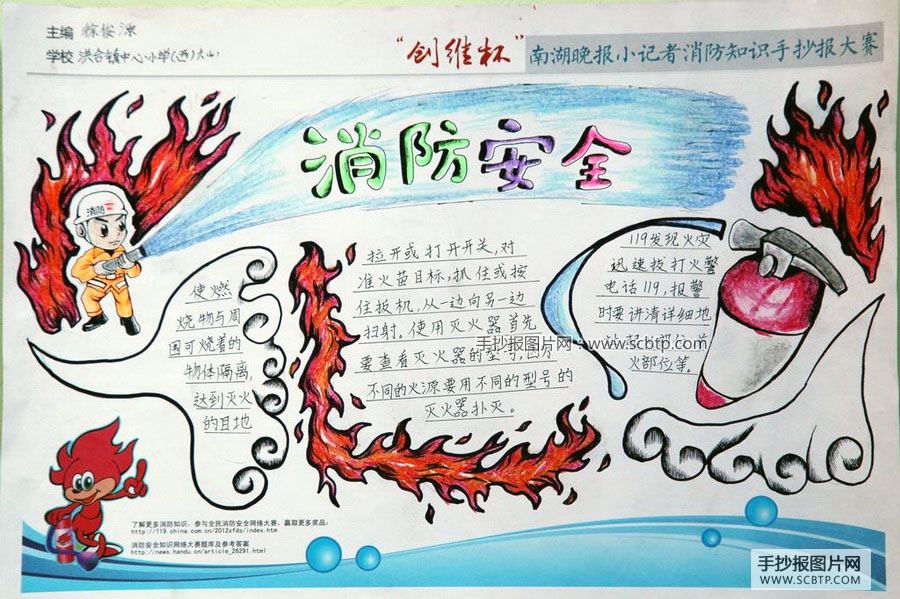 主编 徐俊源
学校 洪合镇中心小学(西)六(1)
“创维杯”
南湖晚报小记者消防知识手抄报大赛
消防安全
消防
使燃
烧物与周
围可烧着的
物体隔离,
达到灭火
的目地
拉开或打开开关,对
准火苗目标,抓住或按
住扳机,从一边向另一边
扫射。使用灭火器首先
要查看灭火器的型号,因为
不同的火源要用不同的型号的
灭火器扑灭。
119发现火灾
迅速拔打火警
电话119,报警
时要讲清详细地
火部位等。
手抄报图片网:www.scbtp.com
了解更多消防知识,参与全民消防安全网络大赛,赢取更多奖品:
http://119.china.com.cn/2012xfds/index.htm
消防安全知识网络大赛题库及参考答案
http://news.handu.cn/article_26291.html
手抄报图片网
WWW.SCBTP.COM